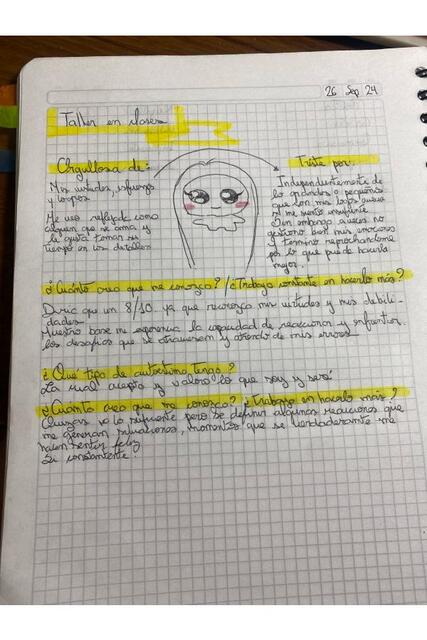 26 Sep 24
Taller en clases
Orgullosa de:
Mis virtudes, esfuerzo
y logros
Me veo reflejada como
alguien que se ama y
le gusta tomar su
tiempo en los detalles
Triste por:
Independientemente de
lo grandes o pequeños
que son mis logros aveces
me siento insuficiente
Sin embargo aveces no
gestiono bien mis emociones
y termino reprochandome
por lo que pude hacerlo
mejor.
¿Cuánto creo que me conozco? / ¿Trabajo constante en hacerlo más?
Diria que un 8/10. ya que reconozco mis virtudes y mis debili-
dades.
Muestro base mi experiencia la capacidad de reaccionar y enfrentar
los desafios que se atraviesan y atiendo de mis errores
¿Qué tipo de autoestima tengo?
La cual acepto y valoro lo que soy y seré
¿Cuanto creo que me conozco? ¿Trabajo en hacerlo más?
Quizas no lo suficiente pero se definir algunas reacciones que
me generan situaciones, momentos que se verdaderamente me
hacen sentir feliz
Si constantemente.